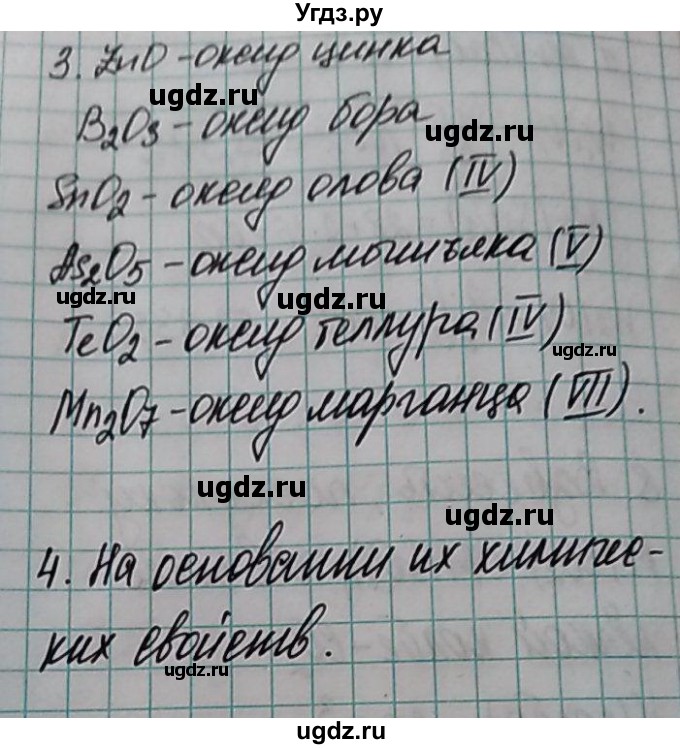 Угдз.ру
3. ZnO - оксид цинка
ugdz.ru
B2O3 - оксид бора
ugdz.ru
SnO2 - оксид олова (IV)
As2O5 - оксид мышьяка (V)
ugdz.ru ugdz.ru
TeO2 - оксид теллура (IV)
ugdz.ru
Mn2O7 - оксид марганца (VII).
ugdz.ru
ugdz.ru
4. На основании их химиче-
ких свойств.
ugdz.ru
ugdz.ru
ugdz.ru